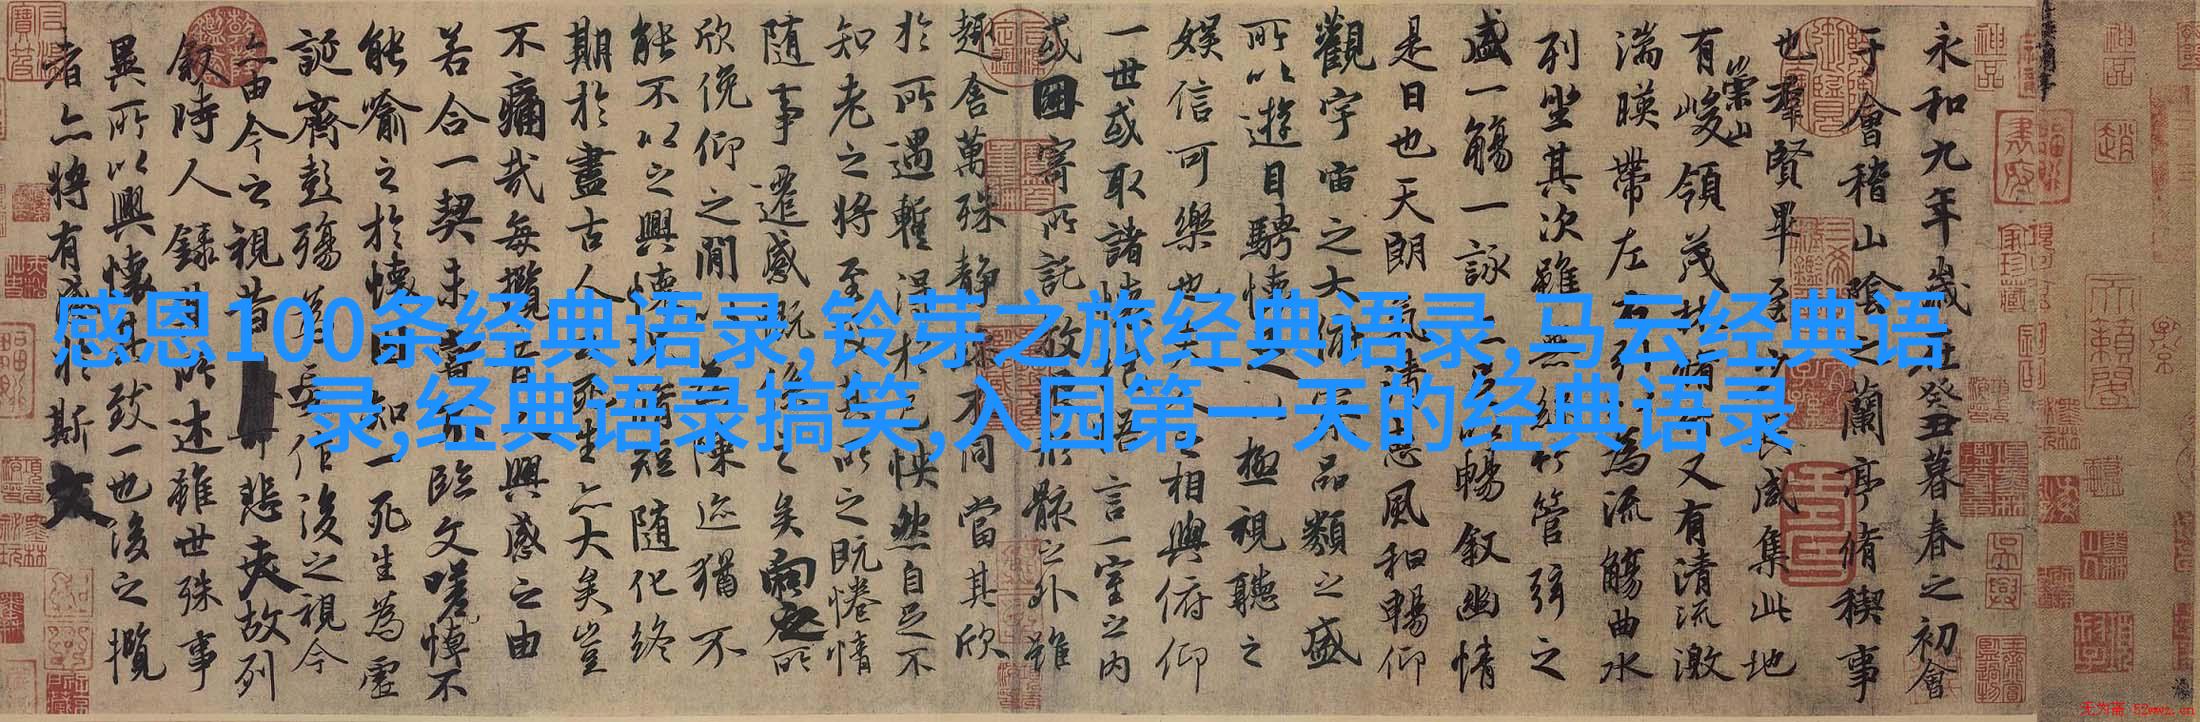 感恩100条经典语录,铃芽之旅经典语录,马云经典语
录,经典语录搞笑,入园第一天的经典语录
永和九年歲在癸丑暮春之初會
于會稽山陰之蘭亭脩稧事
也羣賢畢至少長咸集此地
有崇山峻領茂林脩竹又有清流激
湍暎帶左右引以為流觴曲水
列坐其次雖無絲竹管弦之
盛一觴一詠亦足以暢敘幽情
是日也天朗氣清惠風和暢仰
觀宇宙之大俯察品類之盛
所以遊目騁懷足以極視聽之
娛信可樂也夫人之相與俯仰
一世或取諸懷抱悟言一室之內
或因寄所託放浪形骸之外雖
趣舍萬殊靜躁不同當其欣
於所遇蹔得於己怏然自足不
知老之將至及其所之既惓情
隨事遷感慨係之矣向之所
欣俛仰之閒以為陳迹猶不
能不以之興懷況脩短隨化終
期於盡古人云死生亦大矣豈
不痛哉每攬昔人興感之由
若合一契未嘗不臨文嗟悼不
能喻之於懷固知一死生為虛
誕齊彭殤為妄作後之視今
亦由今之視昔悲夫故列
敘時人錄其所述雖世殊事
異所以興懷其致一也後之攬
者亦將有感於斯文